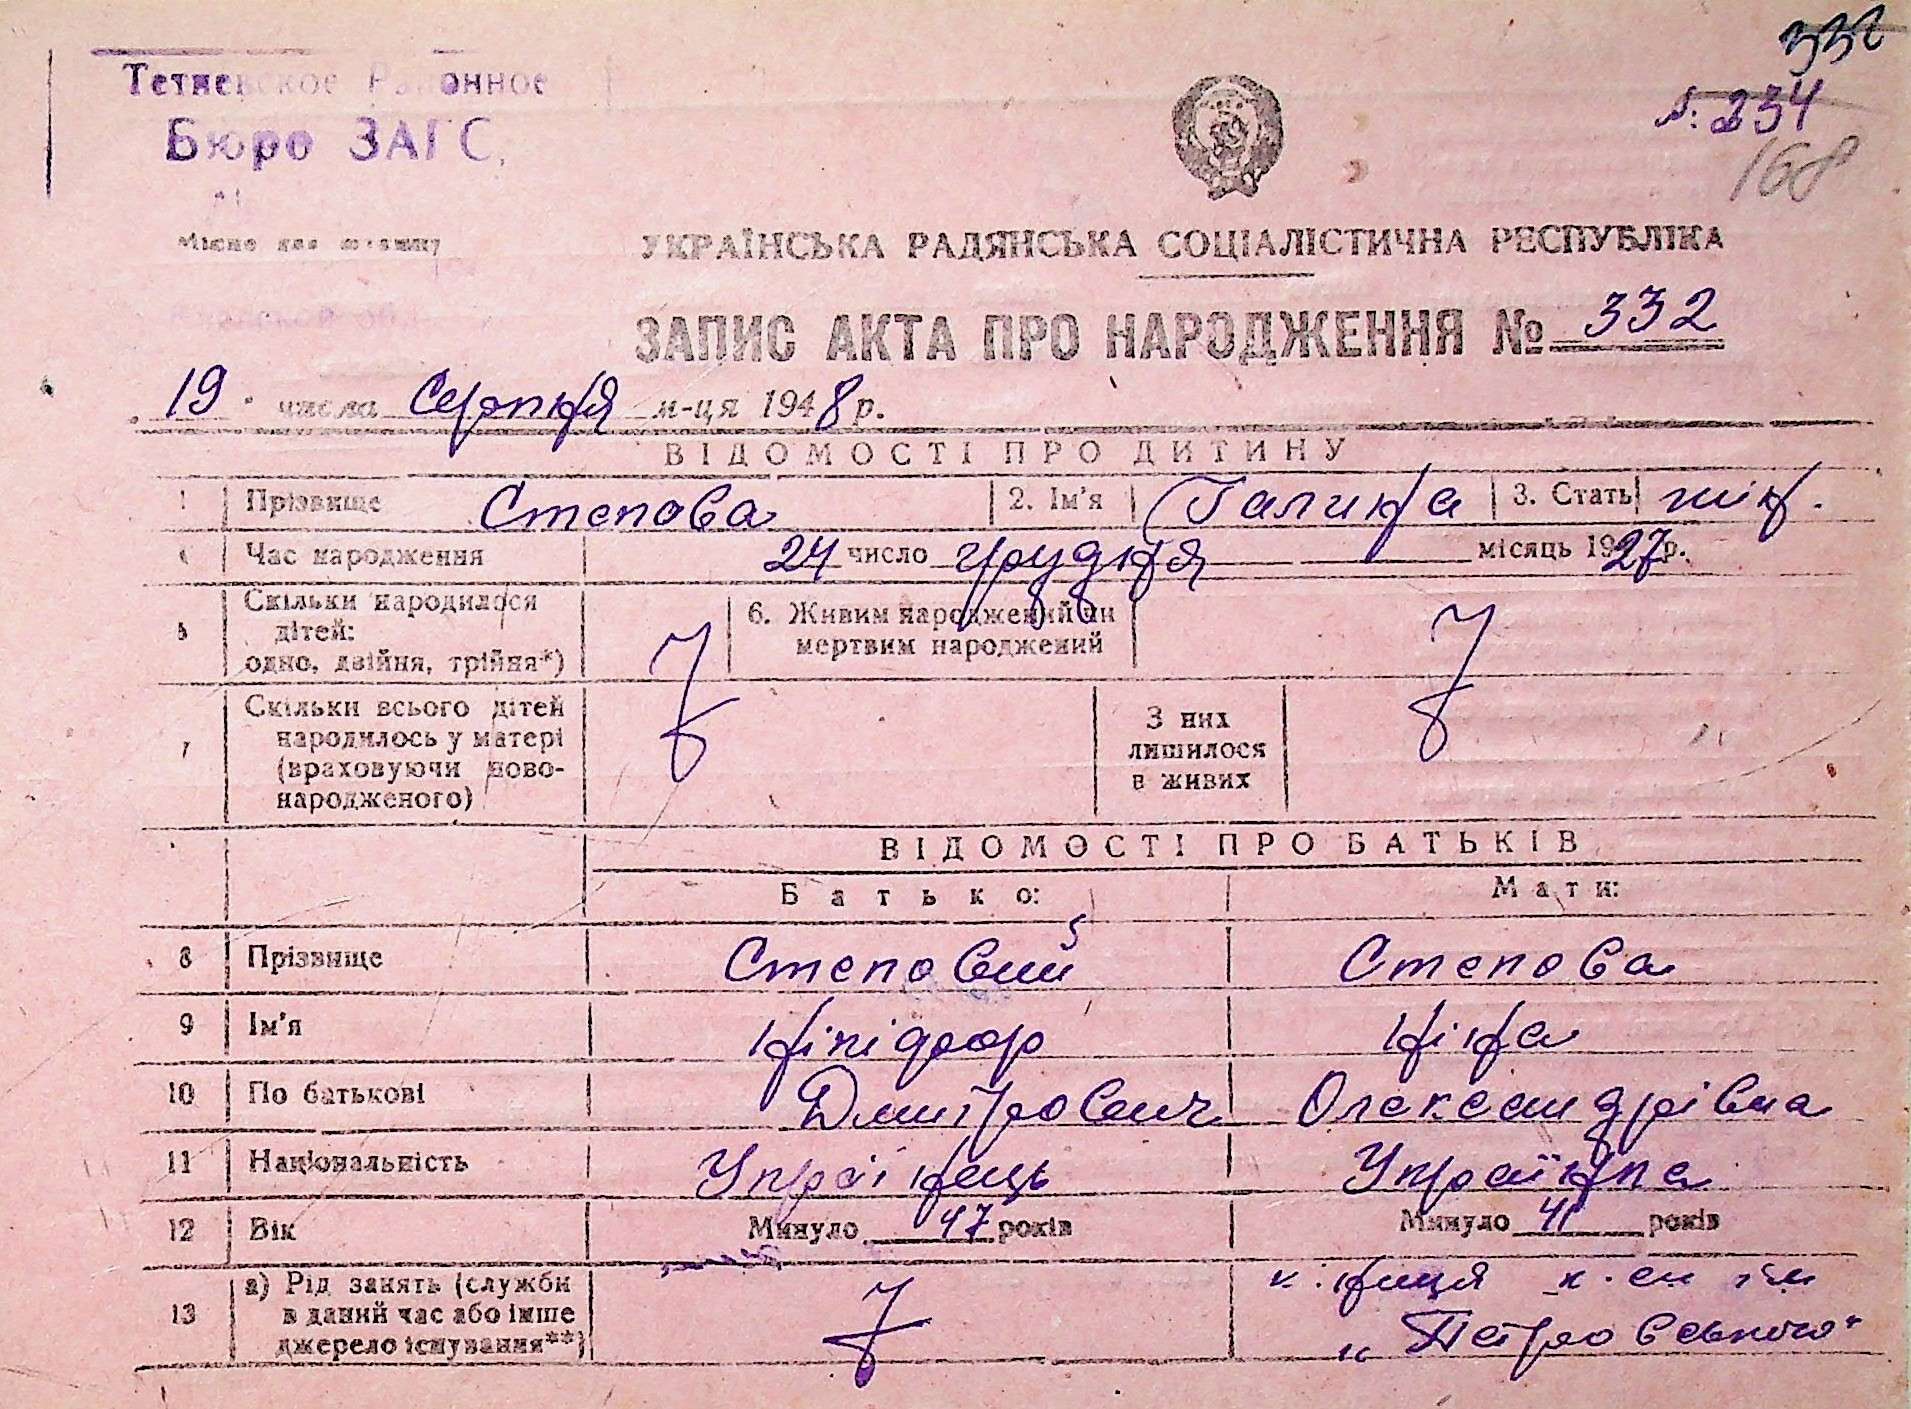 332
Тетиевское Районное
№ 234
Бюро ЗАГС.
168
Місце для штампу
УКРАЇНСЬКА РАДЯНСЬКА СОЦІАЛІСТИЧНА РЕСПУБЛІКА
ЗАПИС АКТА ПРО НАРОДЖЕННЯ № 332
19 числа Серпня м-ця 1948 р.
ВІДОМОСТІ ПРО ДИТИНУ
1 Прізвище Степова 2. Ім'я Галина 3. Стать жін.
4 Час народження 24 число грудня місяць 1927 р.
5 Скільки народилося
дітей:
одно, двійня, трійня*)
6. Живим народжений чи
мертвим народжений
7 Скільки всього дітей
народилось у матері
(враховуючи ново-
народженого)
З них
лишилося
в живих
ВІДОМОСТІ ПРО БАТЬКІВ
Батько: Мати:
8 Прізвище Степовий Степова
9 Ім'я Нікіфор Ніна
10 По батькові Дмитрович Олександрівна
11 Національність Українець Українка
12 Вік Минуло 47 років Минуло 41 років
13 а) Рід занять (служби
в даний час або інше
джерело існування**)
к-ниця к-сп ім
„Петровського"